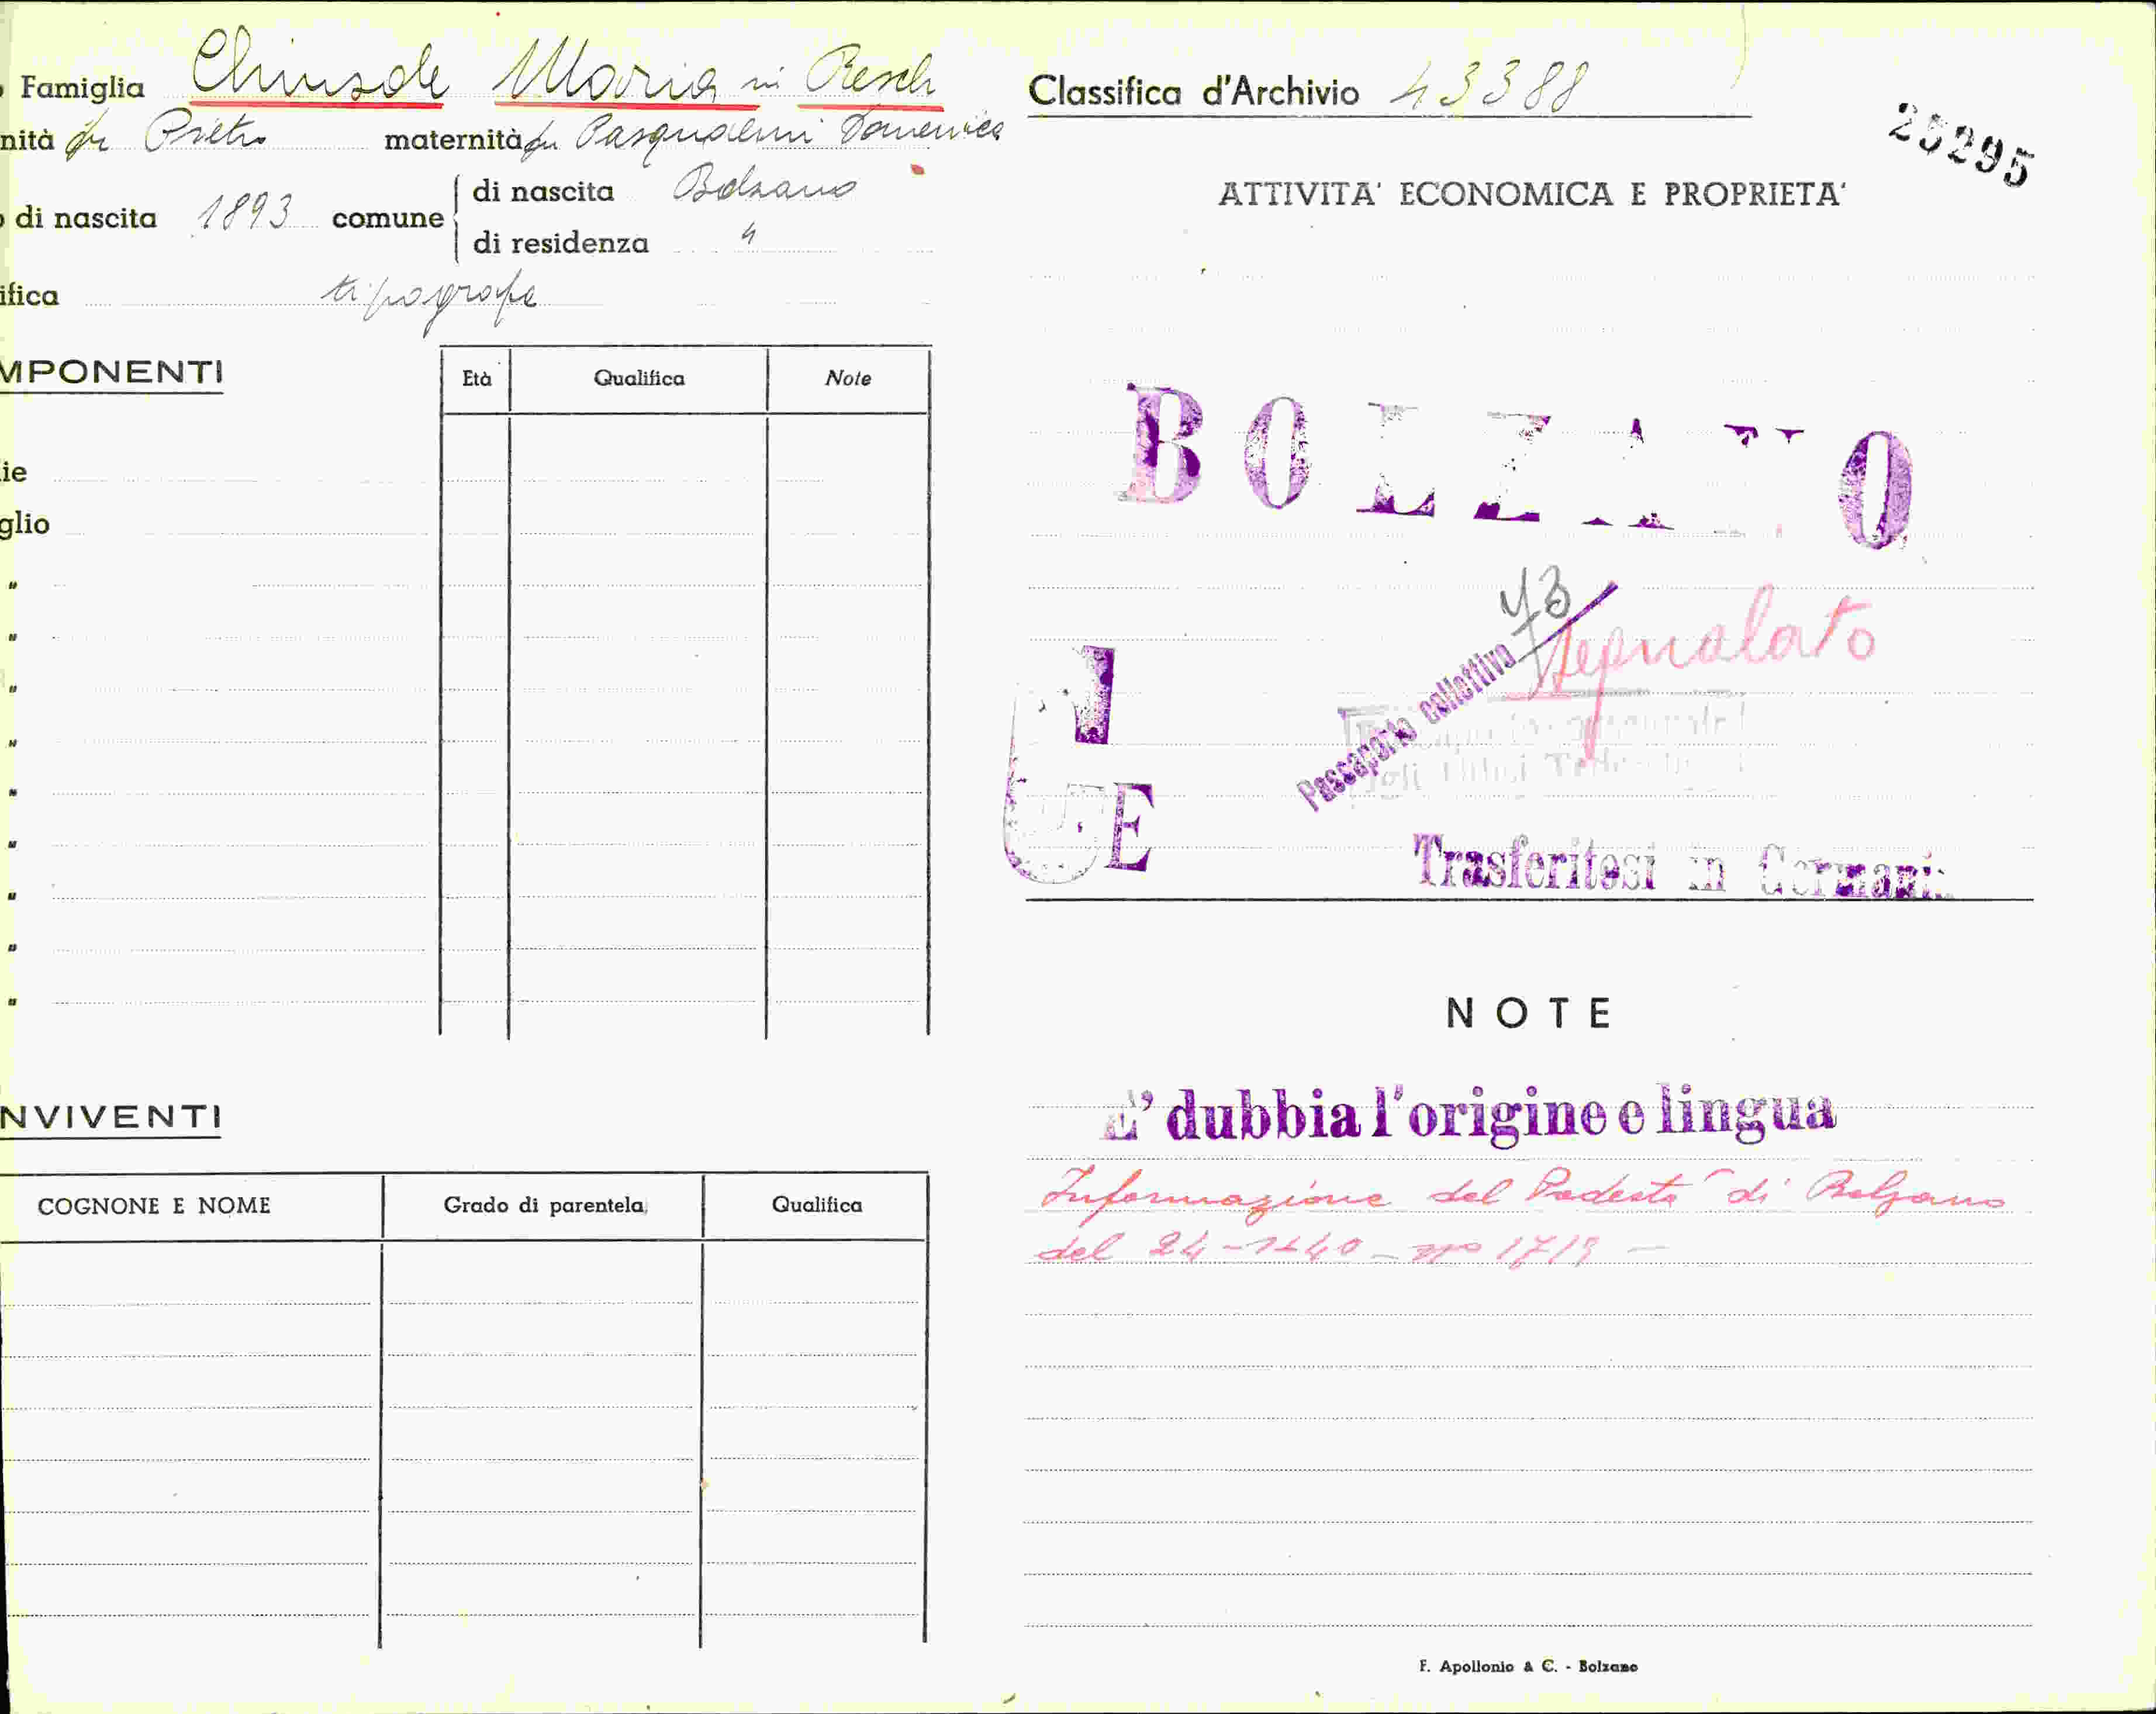 Famiglia Chiusole Maria in Resch
nità fu Pietro maternità fu Pasqualini Domenica
di nascita 1893 comune di nascita Bolzano
di residenza "
ifica tipografa
MPONENTI
Età Qualifica Note
ie
glio
"
"
"
"
"
"
"
"
"
NVIVENTI
COGNONE E NOME Grado di parentela Qualifica
Classifica d'Archivio 43388
25295
ATTIVITA' ECONOMICA E PROPRIETA'
BOLZANO
43
segnalato
Passaporto collettivo
E
Trasferitosi in Germania
NOTE
E' dubbia l'origine e lingua
Informazione del Podestà di Bolzano
del 24-1-40 - n° 1713 -
F. Apollonio & C. - Bolzano